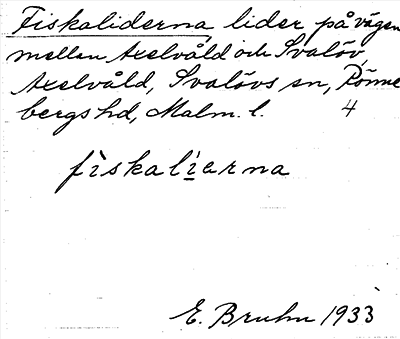 Fiskaliderna, lider på vägen
mellan Axelvåld och Svalöv,
Axelvåld, Svalövs sn, Rönne
bergs hd, Malm. l. 4
fìskalíerna
E. Bruhn 1933